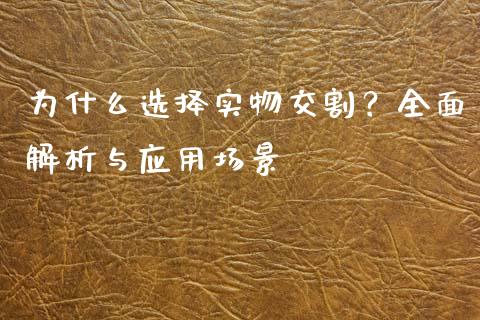 为什么选择实物交割？全面
解析与应用场景